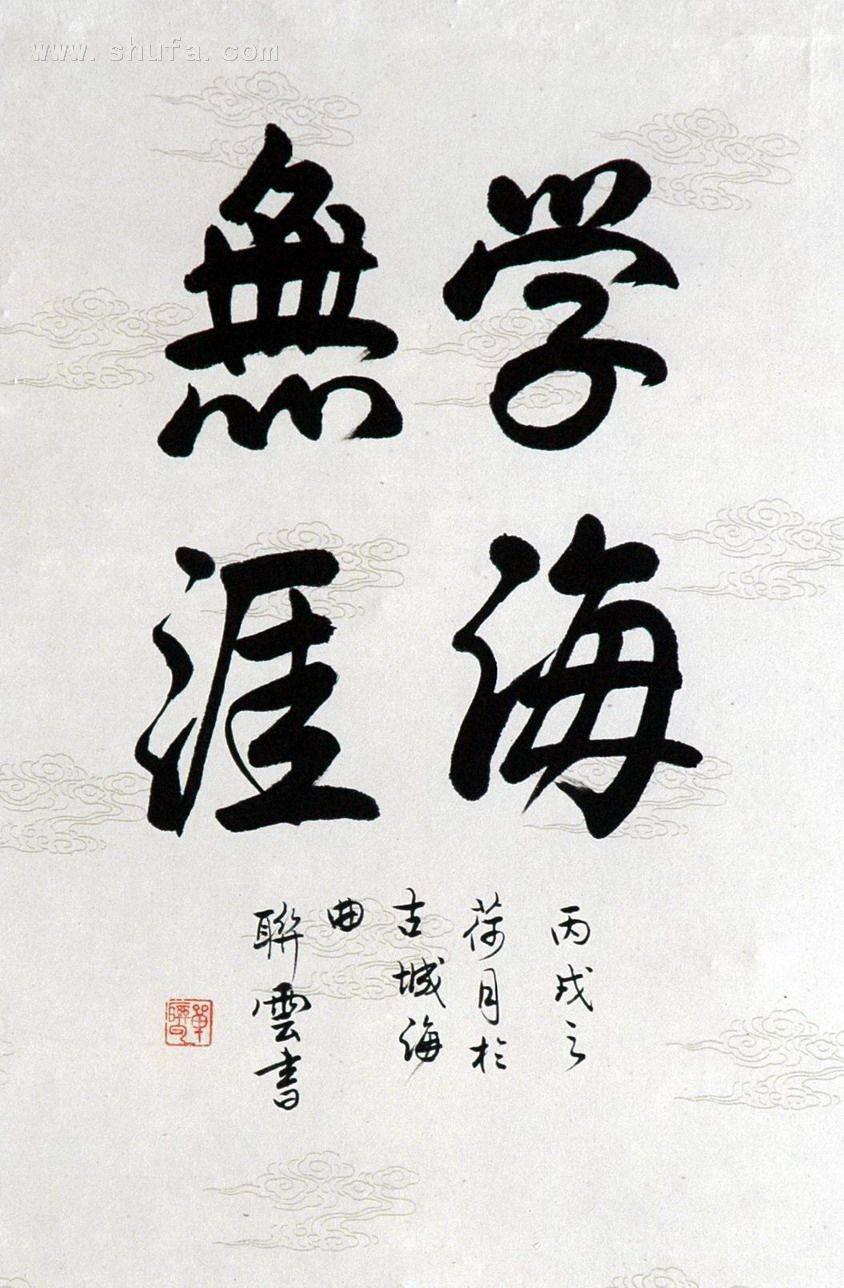 www.shufa.com
学海
無涯
丙戌之
荷月於
古城海
曲
聯雲書